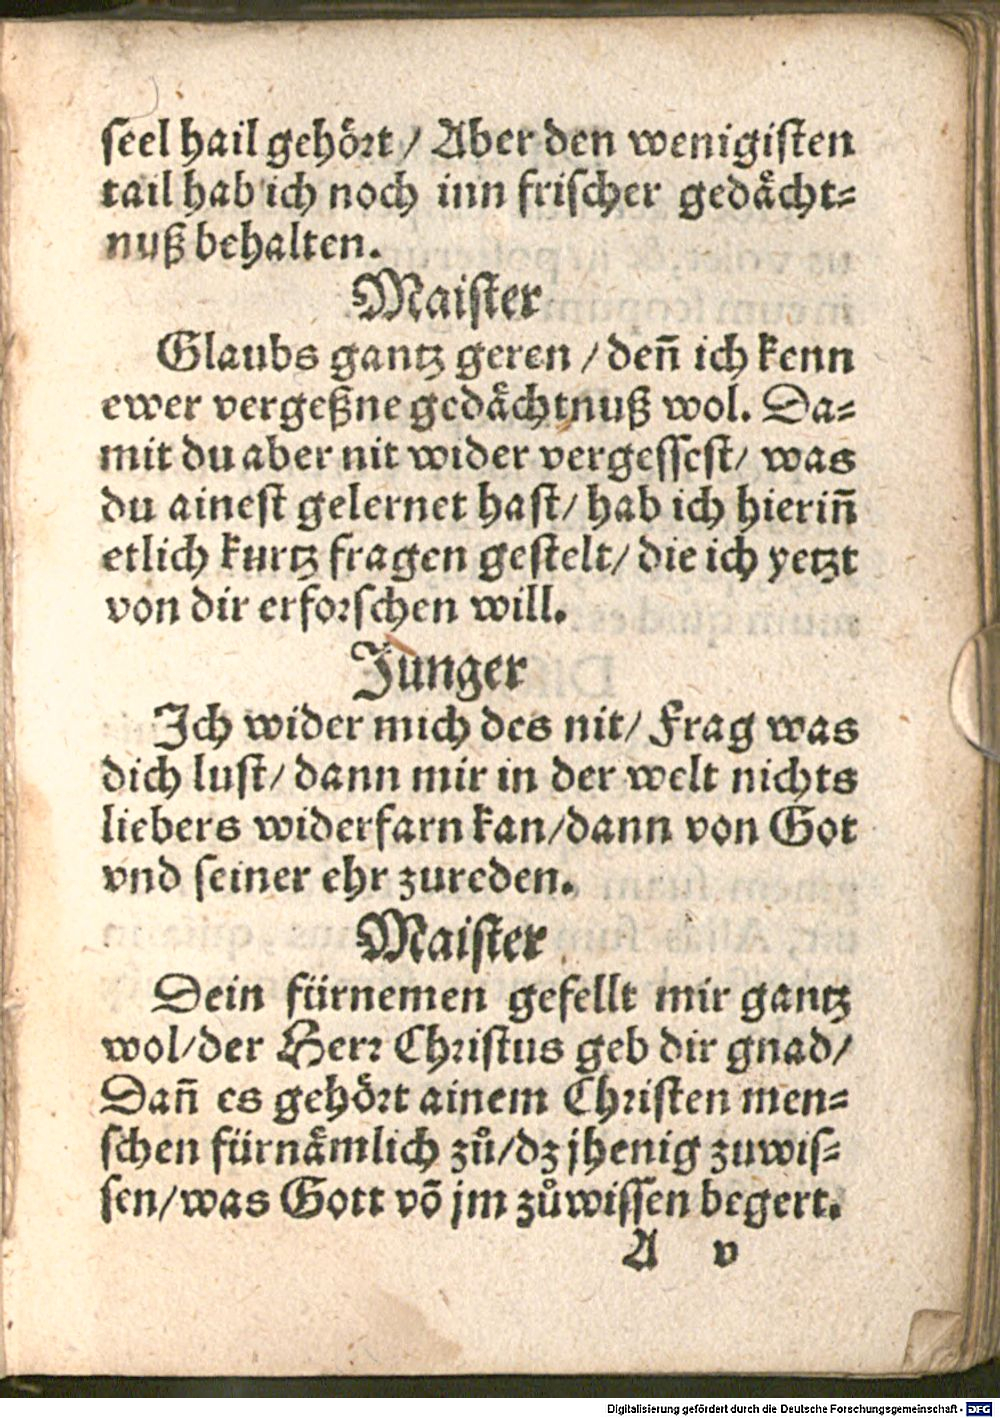 seel hail gehört / Aber den wenigisten
tail hab ich noch inn frischer gedächt-
nuß behalten.
Maister
Glaubs gantz geren / deñ ich kenn
ewer vergeßne gedächtnuß wol. Da-
mit du aber nit wider vergessest / was
du ainest gelernet hast / hab ich hieriñ
etlich kurtz fragen gestelt / die ich yetzt
von dir erforschen will.
Junger
Ich wider mich des nit / Frag was
dich lust / dann mir in der welt nichts
liebers widerfarn kan / dann von Got
vnd seiner ehr zureden.
Maister
Dein fürnemen gefellt mir gantz
wol / der Herr Christus geb dir gnad /
Dañ es gehört ainem Christen men-
schen fürnämlich zů / dz jhenig zuwis-
sen / was Gott võ jm zůwissen begert.
A v
Digitalisierung gefördert durch die Deutsche Forschungsgemeinschaft - DFG